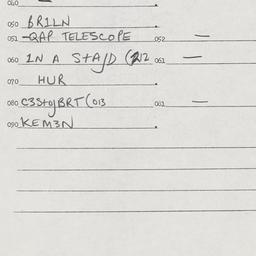 040
050 BR1LN
051 -QAP TELESCOPE 052 —
060 1N A StA/D (212 061 —
070 HUR
080 C3StgBRT(013 061 —
090 KEM3N